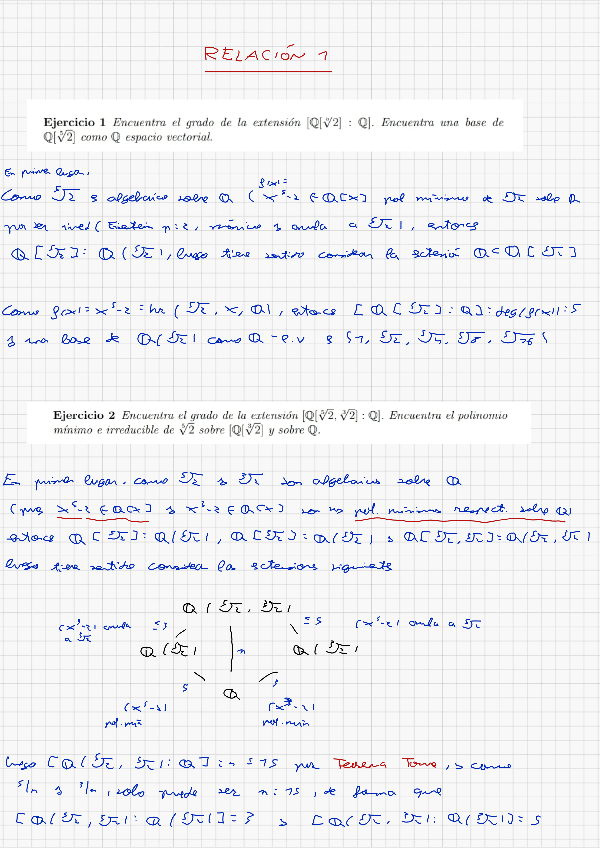 RELACIÓN 1
Ejercicio 1 Encuentra el grado de la extensión [ℚ[⁵√2] : ℚ]. Encuentra una base de
ℚ[⁵√2] como ℚ espacio vectorial.
En primer lugar,
f(x)=
Como ⁵√2 es algebraico sobre ℚ ( x⁵-2 ∈ ℚ[x] pol mínimo de ⁵√2 sobre ℚ
por ser irred ( n=2, mónico y anula a ⁵√2 ), entonces
ℚ[⁵√2] = ℚ(⁵√2), luego tiene sentido considerar la extensión ℚ ⊂ ℚ[⁵√2]
Como f(x) = x⁵-2 = Irr(⁵√2, x, ℚ), entonces [ℚ[⁵√2] : ℚ] = deg(f(x)) = 5
y una base de ℚ(⁵√2) como ℚ-e.v es {1, ⁵√2, ⁵√4, ⁵√8, ⁵√16}
Ejercicio 2 Encuentra el grado de la extensión [ℚ[⁵√2, ³√2] : ℚ]. Encuentra el polinomio
mínimo e irreducible de ⁵√2 sobre [ℚ[³√2] y sobre ℚ.
En primer lugar, como ⁵√2 y ³√2 son algebraicos sobre ℚ
(pues x⁵-2 ∈ ℚ[x] y x³-2 ∈ ℚ[x] son pol. mínimos respect. sobre ℚ)
entonces ℚ[⁵√2] = ℚ(⁵√2), ℚ[³√2] = ℚ(³√2) y ℚ[⁵√2, ³√2] = ℚ(⁵√2, ³√2)
luego tiene sentido considerar las extensiones siguientes
ℚ(⁵√2, ³√2)
(x³-2) anula ≤3 ≤5 (x⁵-2) anula a ⁵√2
a ³√2
ℚ(⁵√2) n ℚ(³√2)
5 ℚ 3
(x⁵-2) (x³-2)
pol. mín pol. mín
luego [ℚ(⁵√2, ³√2) : ℚ] = n ≤ 15 por Teorema Torre, y como
5/n y 3/n, solo puede ser n = 15, de forma que
[ℚ(⁵√2, ³√2) : ℚ(⁵√2)] = 3 y [ℚ(⁵√2, ³√2) : ℚ(³√2)] = 5